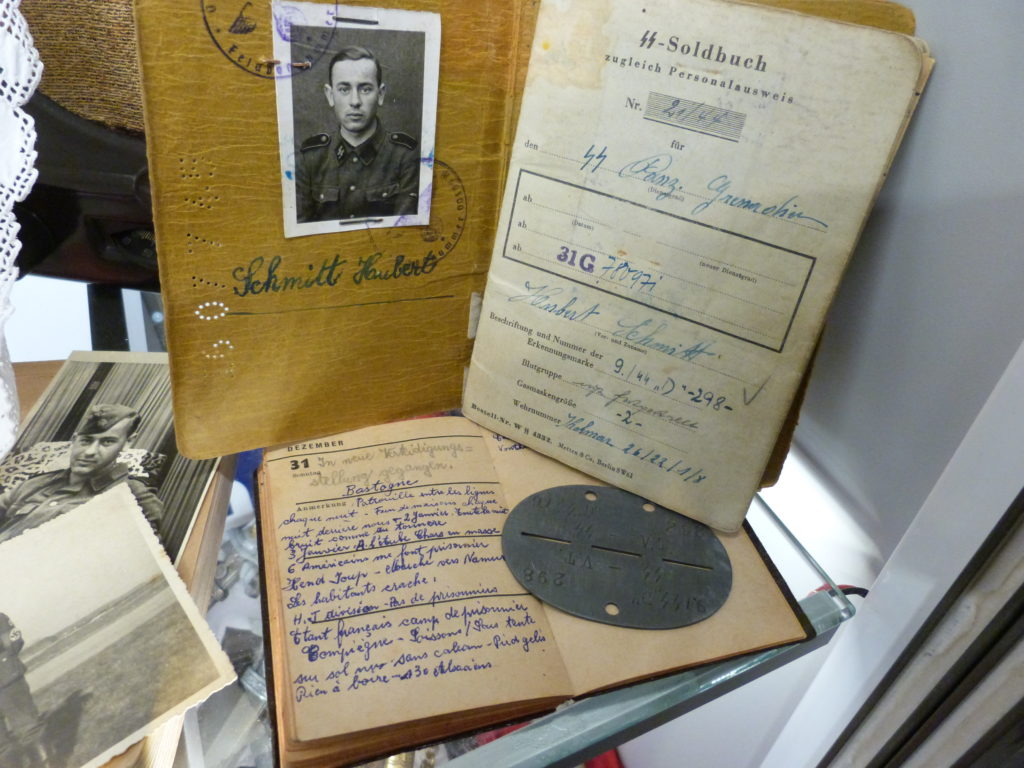 Schmitt Hubert
SS-Soldbuch
zugleich Personalausweis
Nr. 21/44
für
den SS Panz. Grenadier
(Dienstgrad)
ab
(Datum) (neuer Dienstgrad)
ab
ab
31G 78097i
Hubert Schmitt
(Vor- und Zuname)
Beschriftung und Nummer der
Erkennungsmarke 9./44 "D" -298-
Blutgruppe
Gasmaskengröße -2-
Wehrnummer Kolmar 26/22/1/8
Bestell-Nr. W §
DEZEMBER
31 In neue Verteidigungs=
Sonntag stellung gegangen.
Bastogne
Anmerkung: Patrouille entre les lignes
chaque nuit - Feux de maisons chaque
nuit derrière nous - 2 Janvier.
bruit comme du tonnerre
3 Janvier A l'aube Chars en masse
6 Américains me font prisonnier
vers Namur
Les habitants crache!
division - Pas de prisonniers
Etant français camp de prisonnier
Compiègne - Soissons / Sous tente
sur sol nu sans caleçon - Pied gelés
Rien à boire - 30 Alsaciens
298